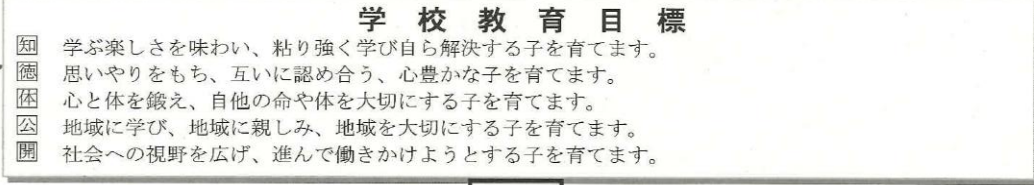 学校教育目標
知 学ぶ楽しさを味わい、粘り強く学び自ら解決する子を育てます。
徳 思いやりをもち、互いに認め合う、心豊かな子を育てます。
体 心と体を鍛え、自他の命や体を大切にする子を育てます。
公 地域に学び、地域に親しみ、地域を大切にする子を育てます。
開 社会への視野を広げ、進んで働きかけようとする子を育てます。